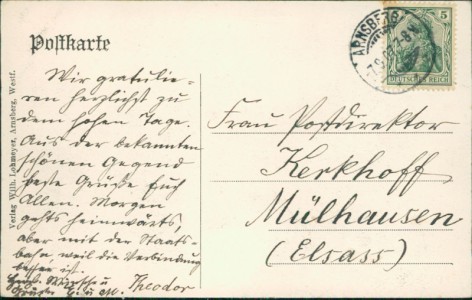 Postkarte
Wir gratulie-
ren herzlichst zu
dem hohen Tage.
Aus der bekannten
schönen Gegend
beste Grüße Euch
Allen. Morgen
gehts heimwärts,
aber mit der Staats-
bahn, weil die Verbindung
besser ist.
Theodor
Verlag Wilh. Lohmeyer, Arnsberg, Westf.
ARNSBERG
5
DEUTSCHES REICH
Frau Postdirektor
Kerkhoff
Mülhausen
(Elsass)